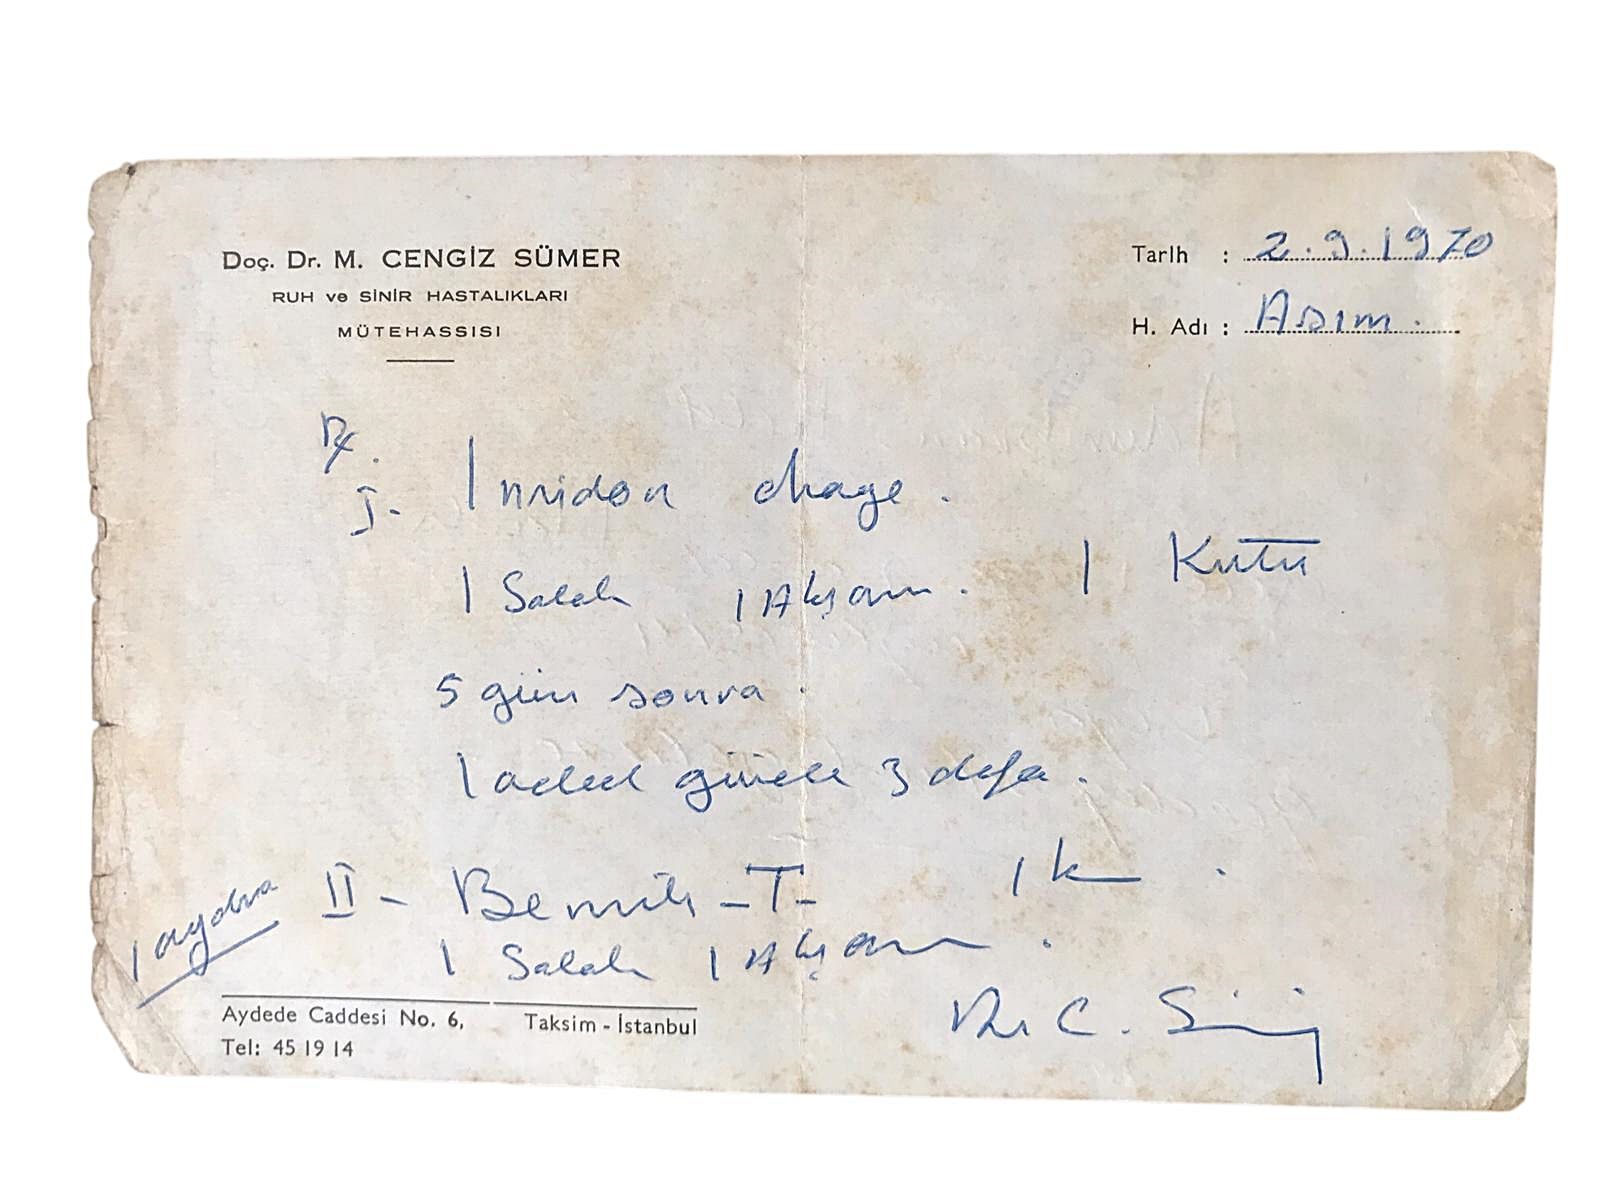 Doç. Dr. M. CENGİZ SÜMER
RUH ve SİNİR HASTALIKLARI
MÜTEHASSISI
Tarih : 2.9.1970
H. Adı : Asım.
I- Insidon drage.
1 Sabah 1 Akşam. 1 Kutu
5 gün sonra.
1 aded günde 3 defa.
II- Bemiks-T- 1 k
1 Sabah 1 Akşam.
Dr. C. Sümer
Aydede Caddesi No. 6, Taksim - İstanbul
Tel: 45 19 14